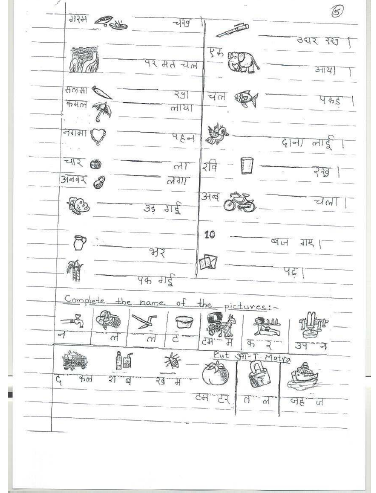 5
गरम ___ चख ।
___ उधर रख ।
___ पर मत चल
एक ___ आया ।
सलमा ___ रखा
कमल ___ लाया
चल ___ पकड़ ।
नगमा ___ पहन
___ दाना लाई ।
चार ___ ला
अकबर ___ लगा
रवि ___ रख ।
___ उड़ गई
अब ___ चला ।
___ भर
10 ___ बज गए ।
___ पक गई
___ पढ़ ।
Complete the name of the pictures:-
न ल ल ट टम म क र उप न
Put आ-ा Matra
द कल श ब ख म टम टर त ल जह ज